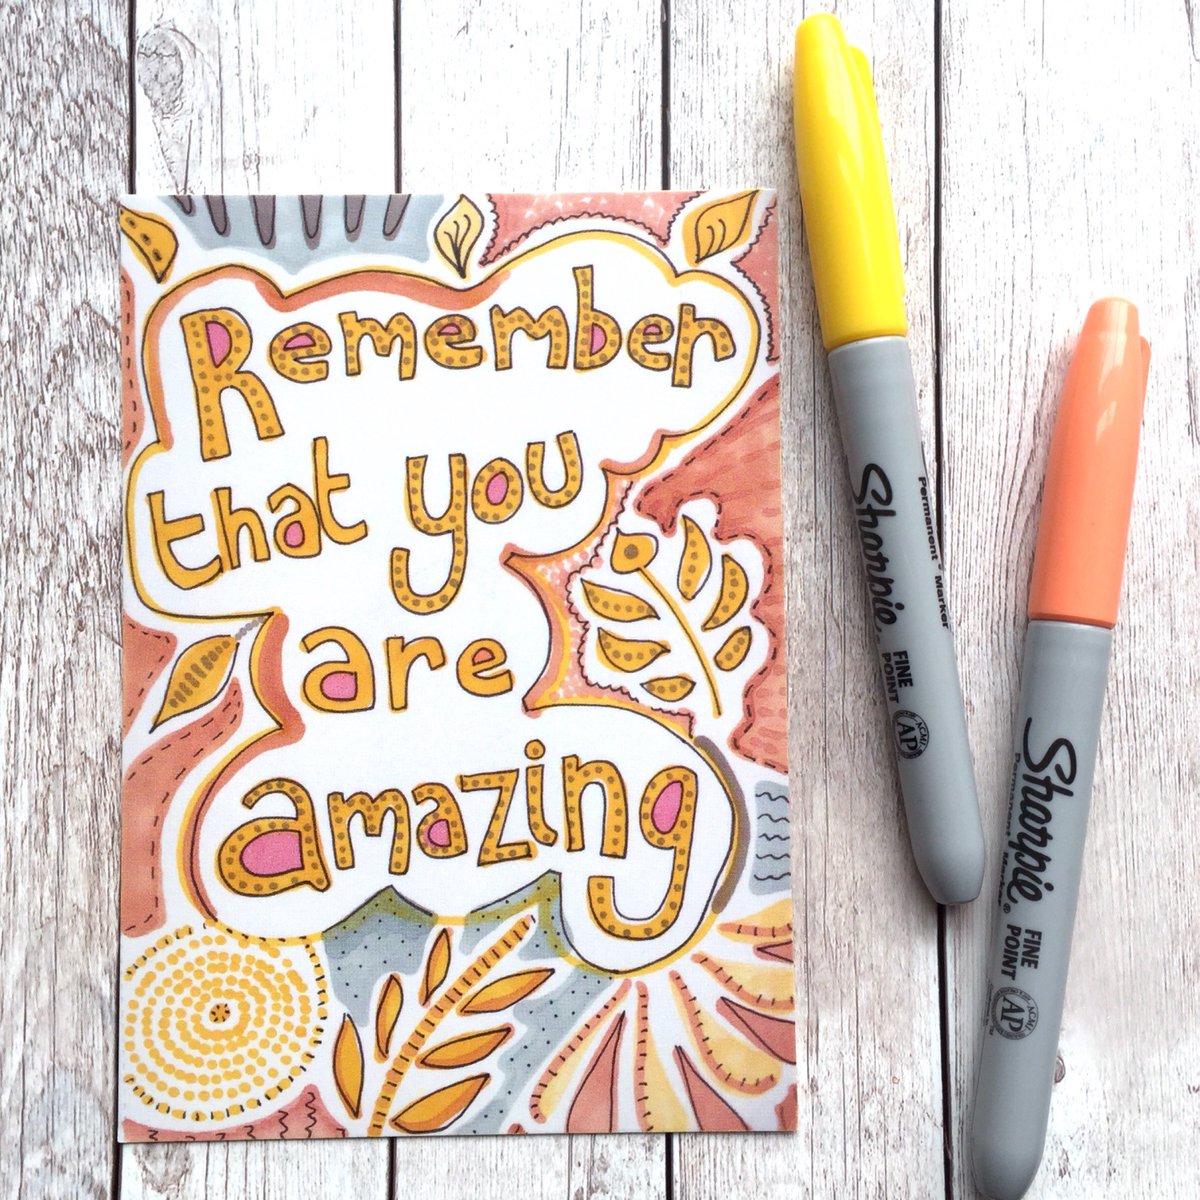 Remember
that you
are
amazing
Sharpie
Permanent Marker
FINE
POINT
ACMI
AP
Sharpie®
Permanent Marker
FINE
POINT
ACMI
AP